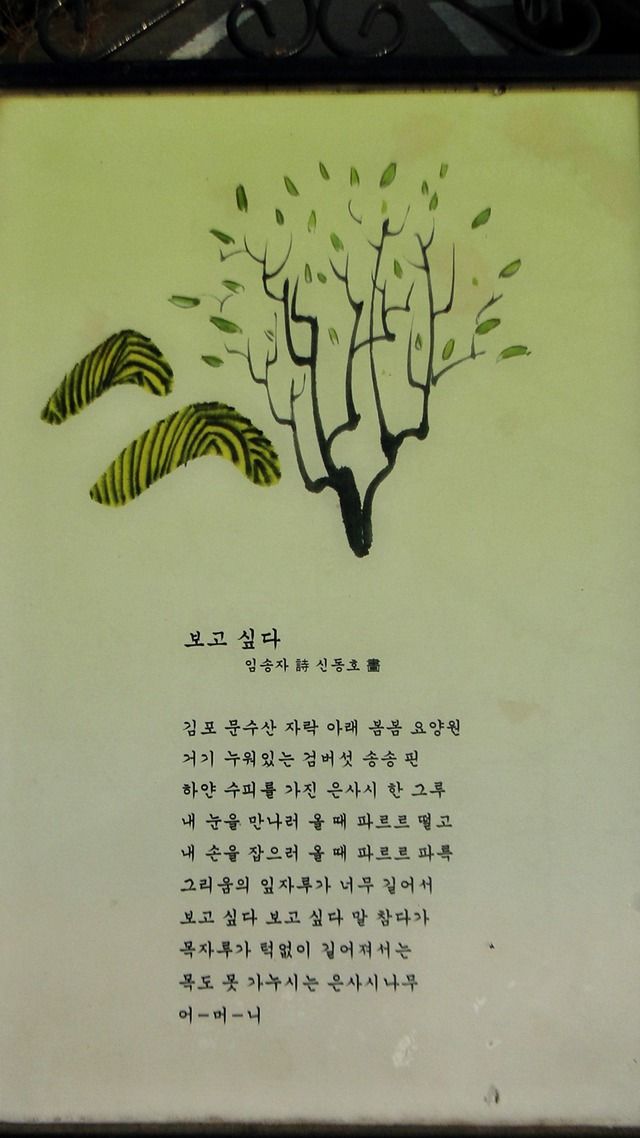 보고 싶다
임송자 詩 신동호 畵
김포 문수산 자락 아래 봄봄 요양원
거기 누워있는 검버섯 송송 핀
하얀 수피를 가진 은사시 한 그루
내 눈을 만나러 올 때 파르르 떨고
내 손을 잡으러 올 때 파르르 파륵
그리움의 잎자루가 너무 길어서
보고 싶다 보고 싶다 말 참다가
목자루가 턱없이 길어져서는
목도 못 가누시는 은사시나무
어-머-니